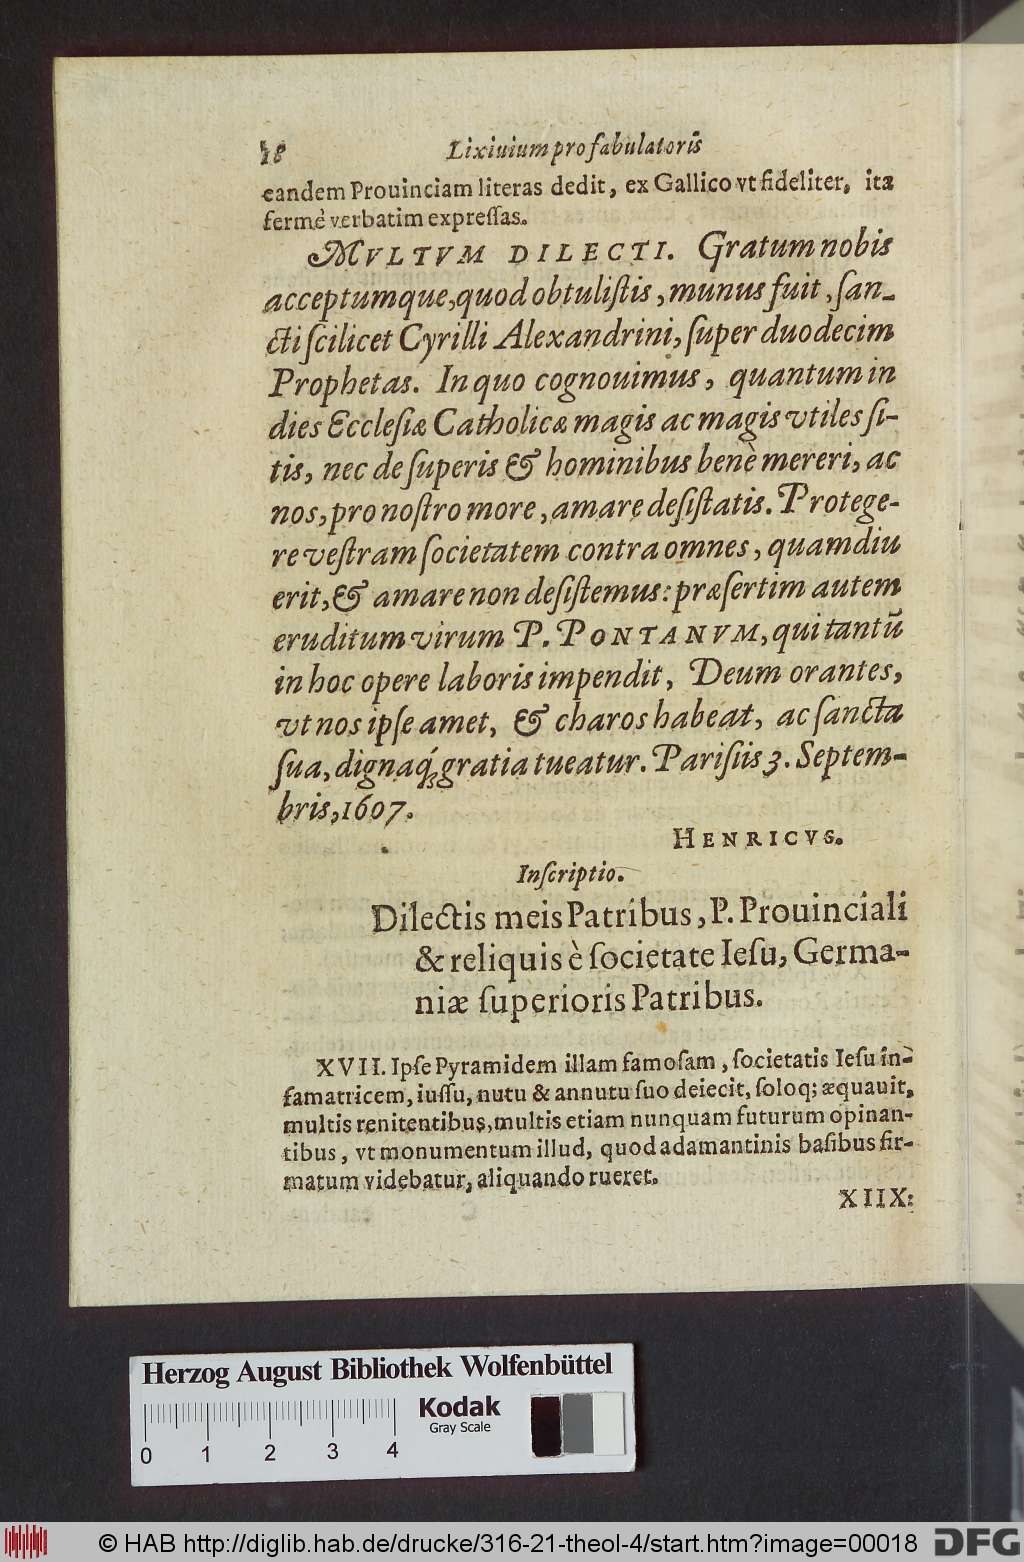 18 Lixiuium pro fabulatorib
eandem Prouinciam literas dedit, ex Gallico vt fideliter, ita
fermè verbatim expreſſas.
MVLTVM DILECTI. Gratum nobis
acceptumque, quod obtuliſtis, munus fuit, ſan-
cti ſcilicet Cyrilli Alexandrini, ſuper duodecim
Prophetas. In quo cognouimus, quantum in
dies Eccleſiæ Catholicæ magis ac magis vtiles ſi-
tis, nec de ſuperis & hominibus benè mereri, ac
nos, pro noſtro more, amare deſiſtatis. Protege-
re veſtram ſocietatem contra omnes, quamdiu
erit, & amare non deſiſtemus: præſertim autem
eruditum virum P. PONTANVM, qui tantũ
in hoc opere laboris impendit, Deum orantes,
vt nos ipſe amet, & charos habeat, ac ſancta
ſua, dignaq́; gratia tueatur. Pariſiis 3. Septem-
bris, 1607.
HENRICVS.
Inſcriptio.
Dilectis meis Patribus, P. Prouinciali
& reliquis è ſocietate Ieſu, Germa-
niæ ſuperioris Patribus.
XVII. Ipſe Pyramidem illam famoſam, ſocietatis Ieſu in-
famatricem, iuſſu, nutu & annutu ſuo deiecit, ſoloq; æquauit,
multis renitentibus, multis etiam nunquam futurum opinan-
tibus, vt monumentum illud, quod adamantinis baſibus fir-
matum videbatur, aliquando rueret.
XIIX:
Herzog August Bibliothek Wolfenbüttel
Kodak
Gray Scale
0 1 2 3 4
© HAB http://diglib.hab.de/drucke/316-21-theol-4/start.htm?image=00018
DFG